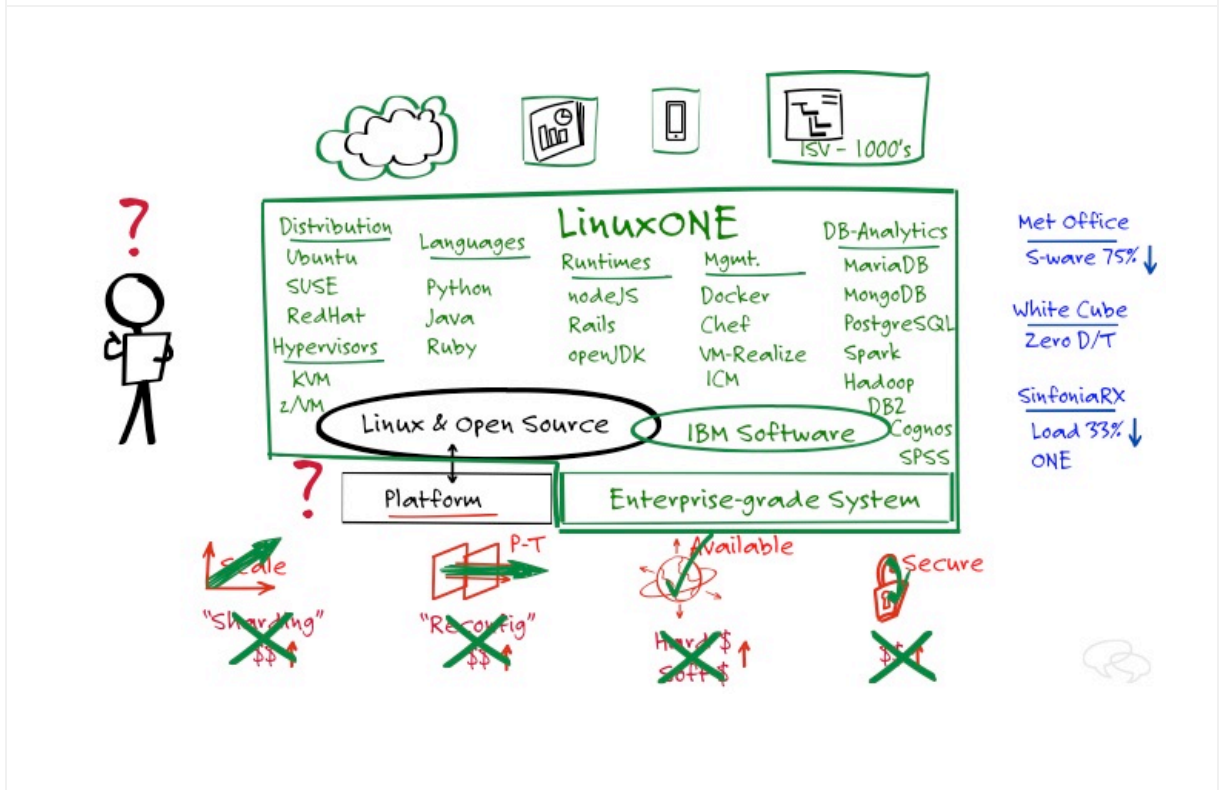 ?
ISV - 1000's
LinuxONE
Distribution
Ubuntu
SUSE
RedHat
Hypervisors
KVM
z/VM
Languages
Python
Java
Ruby
Runtimes
nodeJS
Rails
openJDK
Mgmt.
Docker
Chef
VM-Realize
ICM
DB-Analytics
MariaDB
MongoDB
PostgreSQL
Spark
Hadoop
DB2
Cognos
SPSS
Linux & Open Source
IBM Software
?
Platform
Enterprise-grade System
Met Office
S-ware 75%
White Cube
Zero D/T
SinfoniaRX
Load 33%
ONE
Scale
"Sharding"
$$
P-T
"Reconfig"
$$
Available
Hard $
Soft $
Secure
$$